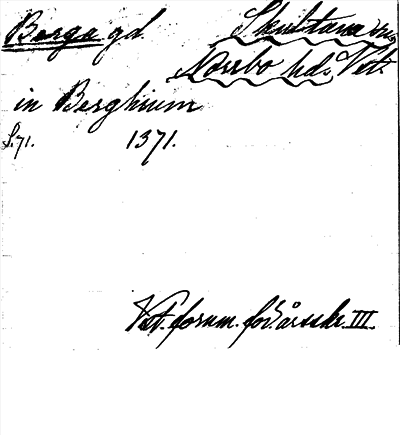 Berga gd. Skultuna sn
Norrbo hds Vstl.
in Berghium
S. 71. 1371.
Vst. fornm. för. årsskr. III.